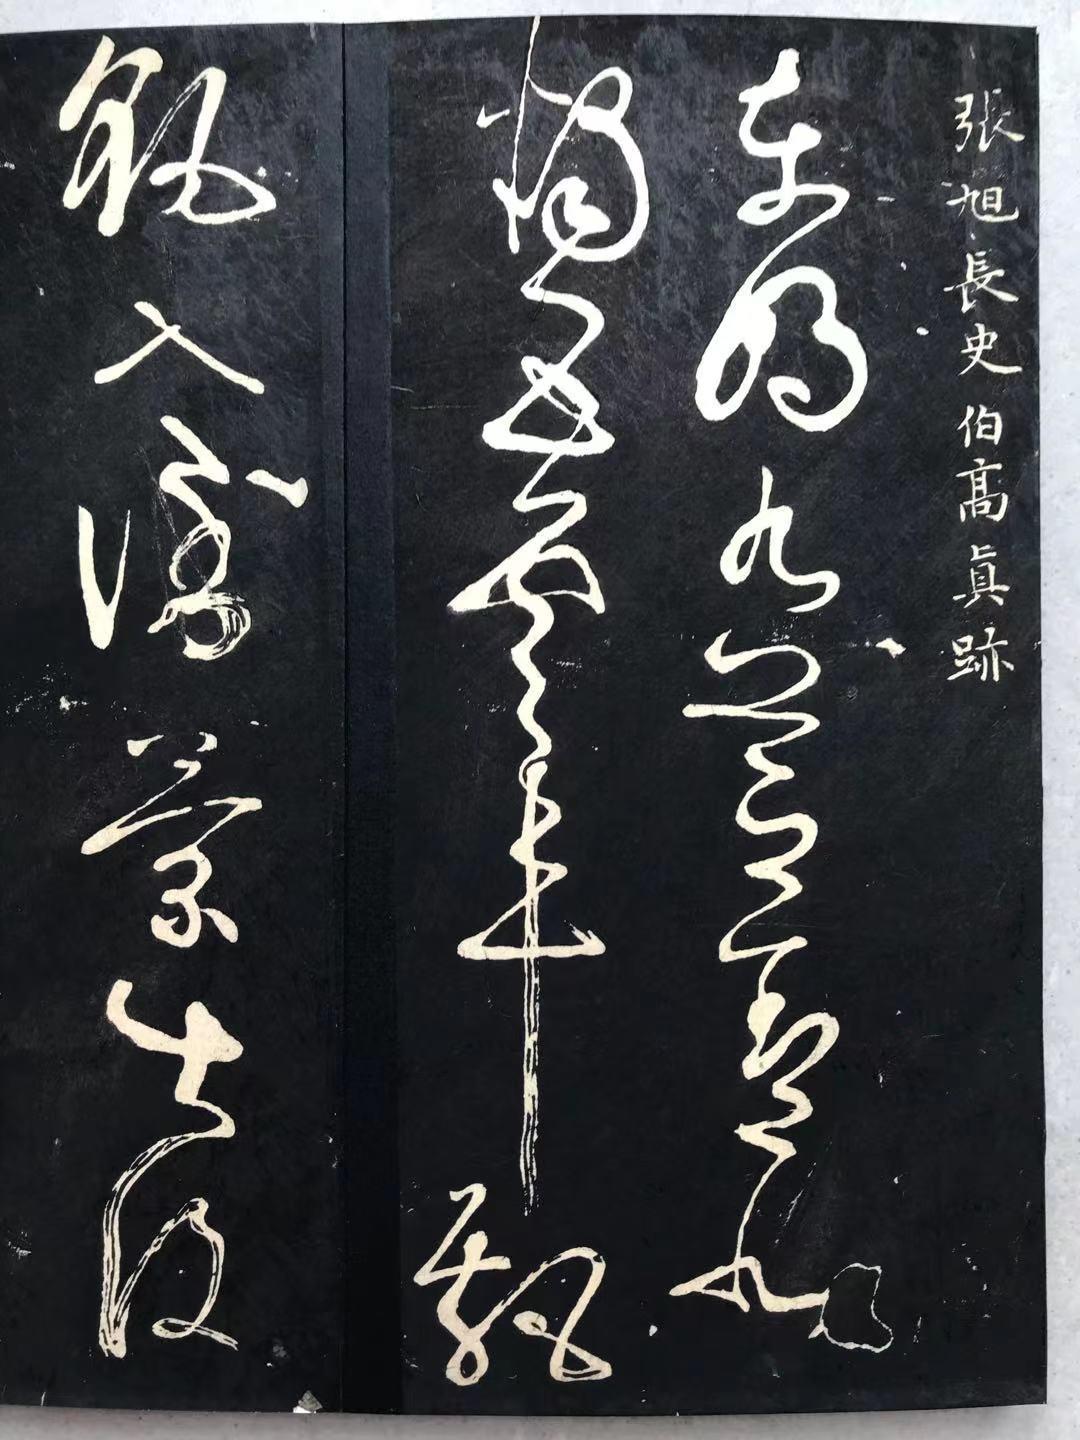 張旭長史伯高真跡
東明九芝蓋北
燭五雲車飄
飖入倒景出没